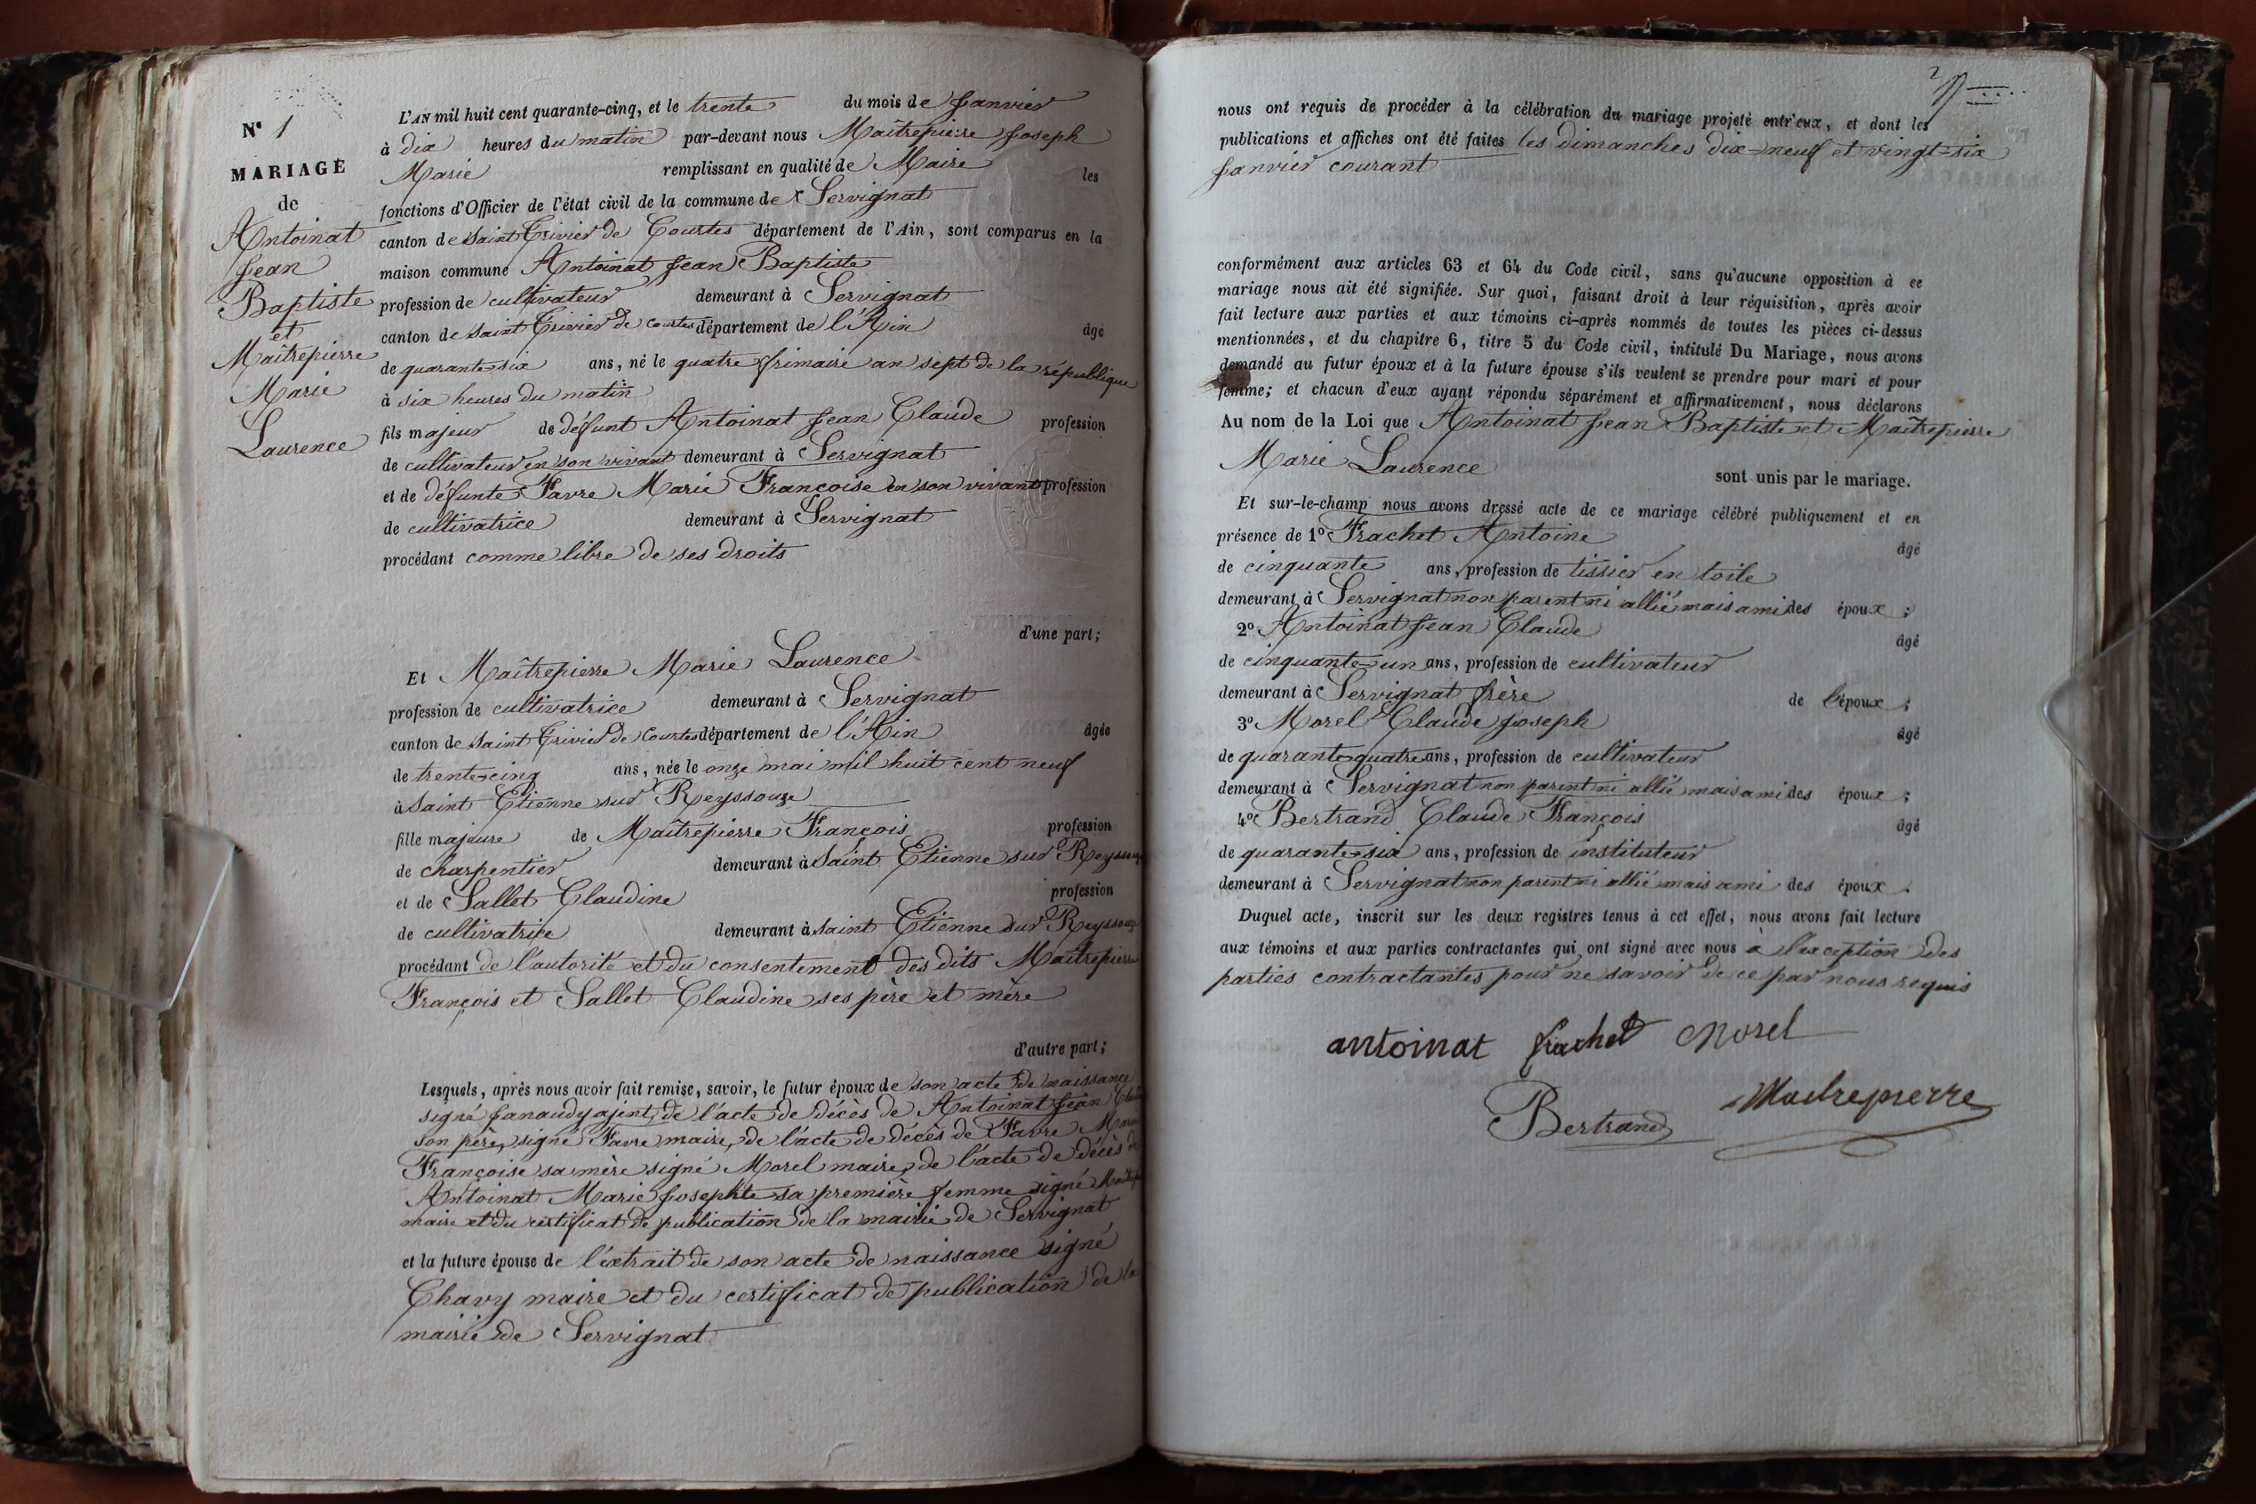 N° 1
MARIAGE
de
Antoinat
Jean
Baptiste
et
Maîtrepierre
Marie
Laurence
L'AN mil huit cent quarante-cinq, et le trente du mois de Janvier
à dix heures du matin par-devant nous Maîtrepierre Joseph
Marie remplissant en qualité de Maire les
fonctions d'Officier de l'état civil de la commune de Servignat
canton de Saint Trivier de Courtes département de l'Ain, sont comparus en la
maison commune Antoinat Jean Baptiste
profession de cultivateur demeurant à Servignat
canton de Saint Trivier de Courtes département de l'Ain âgé
de quarante-six ans, né le quatre frimaire an sept de la république
à six heures du matin
fils majeur de défunt Antoinat Jean Claude profession
de cultivateur en son vivant demeurant à Servignat
et de défunte Favre Marie Françoise en son vivant profession
de cultivatrice demeurant à Servignat
procédant comme libre de ses droits
d'une part;
Et Maîtrepierre Marie Laurence
profession de cultivatrice demeurant à Servignat
canton de Saint Trivier de Courtes département de l'Ain âgée
de trente-cinq ans, née le onze mai mil huit cent neuf
à Saint Etienne sur Reyssouze
fille majeure de Maîtrepierre François profession
de charpentier demeurant à Saint Etienne sur Reyssouze
et de Sallet Claudine profession
de cultivatrice demeurant à Saint Etienne sur Reyssouze
procédant de l'autorité et du consentement des dits Maîtrepierre
François et Sallet Claudine ses père et mère
d'autre part;
Lesquels, après nous avoir fait remise, savoir, le futur époux de son acte de naissance
signé Janaudy ajoint, de l'acte de décès de Antoinat Jean Claude
son père, signé Favre maire, de l'acte de décès de Favre Marie
Françoise sa mère signé Morel maire, de l'acte de décès de
Antoinat Marie Josephte sa première femme signé
maire et du certificat de publication de la mairie de Servignat
et la future épouse de l'extrait de son acte de naissance signé
Chavy maire et du certificat de publication de la
mairie de Servignat
nous ont requis de procéder à la célébration du mariage projeté entr'eux, et dont les
publications et affiches ont été faites les dimanches dix-neuf et vingt-six
Janvier courant
conformément aux articles 63 et 64 du Code civil, sans qu'aucune opposition à ce
mariage nous ait été signifiée. Sur quoi, faisant droit à leur réquisition, après avoir
fait lecture aux parties et aux témoins ci-après nommés de toutes les pièces ci-dessus
mentionnées, et du chapitre 6, titre 5 du Code civil, intitulé Du Mariage, nous avons
demandé au futur époux et à la future épouse s'ils veulent se prendre pour mari et pour
femme; et chacun d'eux ayant répondu séparément et affirmativement, nous déclarons
Au nom de la Loi que Antoinat Jean Baptiste et Maîtrepierre
Marie Laurence sont unis par le mariage.
Et sur-le-champ nous avons dressé acte de ce mariage célébré publiquement et en
présence de 1° Frachet Antoine âgé
de cinquante ans, profession de tissier en toile
demeurant à Servignat non parent ni allié mais ami des époux;
2° Antoinat Jean Claude âgé
de cinquante-un ans, profession de cultivateur
demeurant à Servignat frère de l'époux;
3° Morel Claude Joseph âgé
de quarante-quatre ans, profession de cultivateur
demeurant à Servignat non parent ni allié mais ami des époux;
4° Bertrand Claude François âgé
de quarante-six ans, profession de instituteur
demeurant à Servignat non parent ni allié mais ami des époux.
Duquel acte, inscrit sur les deux registres tenus à cet effet, nous avons fait lecture
aux témoins et aux parties contractantes qui ont signé avec nous à l'exception des
parties contractantes pour ne savoir de ce par nous requis
antoinat frachet Morel
Bertrand Maitrepierre